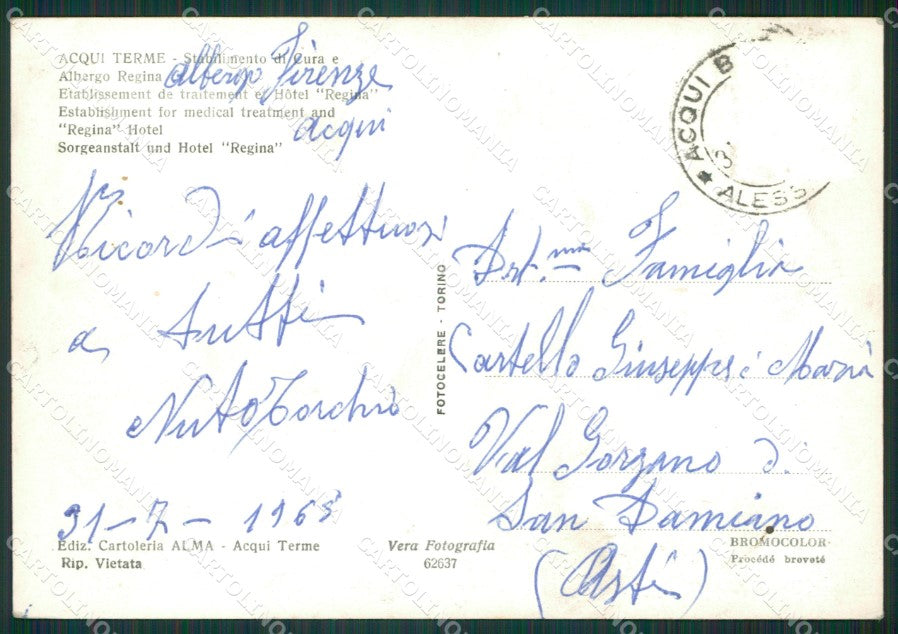 ACQUI TERME - Stabilimento di Cura e
Albergo Regina
Etablissement de traitement et Hôtel "Regina"
Establishment for medical treatment and
"Regina" Hotel
Sorgeanstalt und Hotel "Regina"
albergo Firenze
acqui
Ricordi affettuosi
a tutti
Nuto Torchio
31-7-1965
Ediz. Cartoleria ALMA - Acqui Terme
Rip. Vietata
Vera Fotografia
62637
FOTOCELERE - TORINO
ACQUI B
ALESS
Famiglia
Cartello Giuseppe e Maria
Val Gorzano di
San Damiano
(Asti)
BROMOCOLOR
Procédé breveté
CARTOLINOMANIA